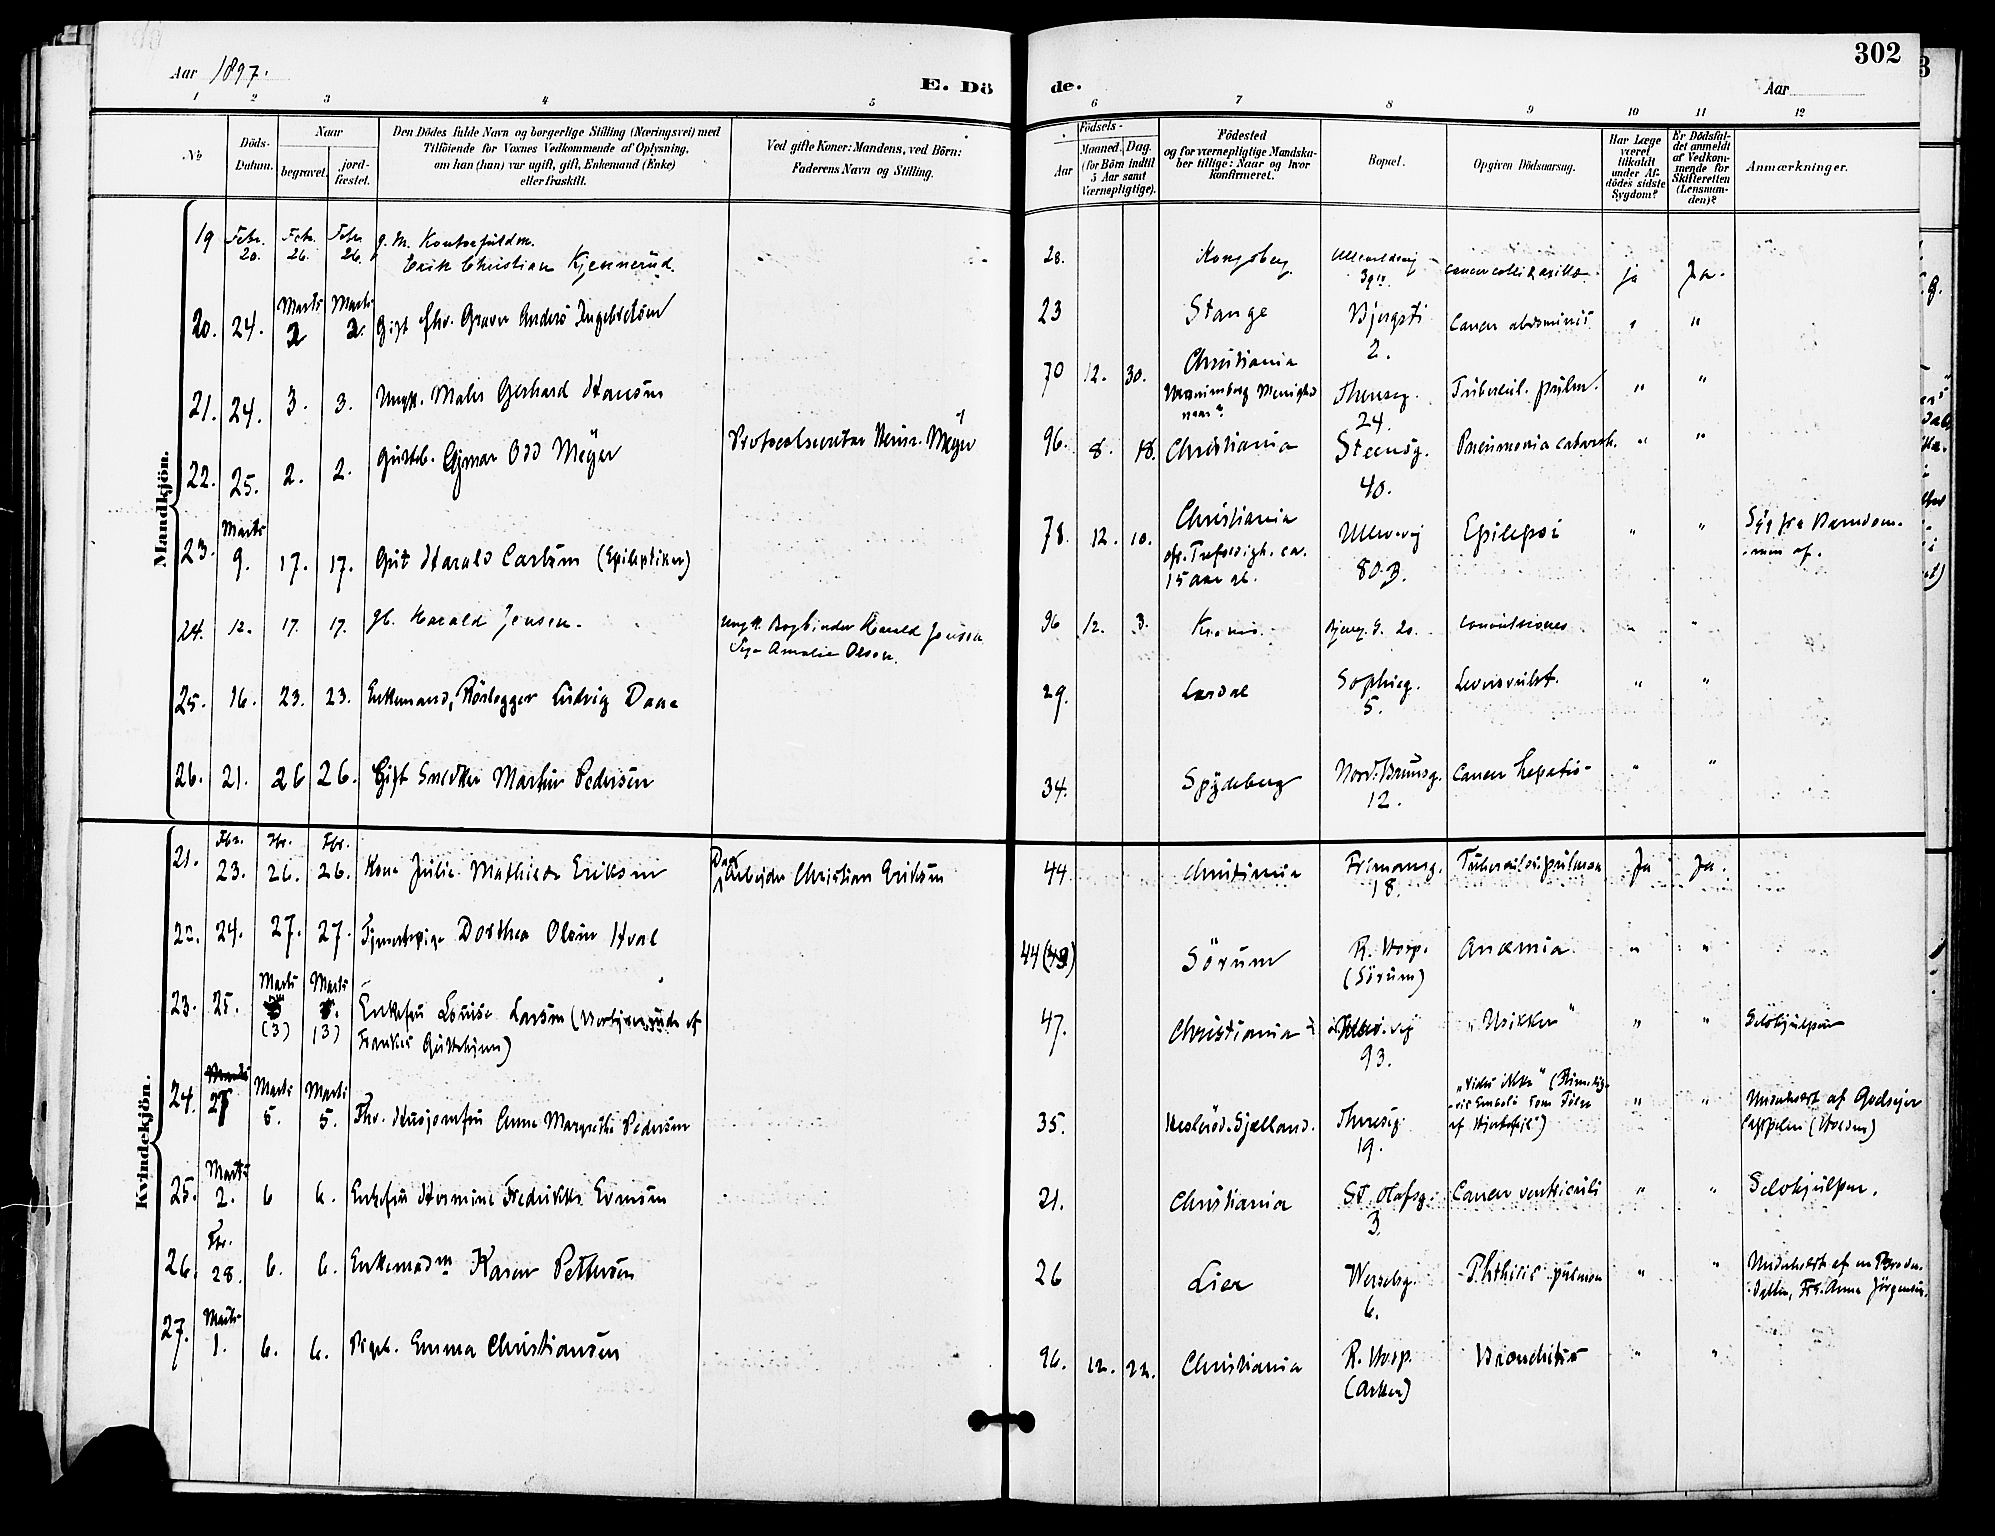 302
Aar 1897.
E. Dö
de.
Aar
1 2 3 4 5
6 7 8 9 10 11 12
No
Döds-
Datum.
Naar
begravet.
jord-
fæstet.
Den Dödes fulde Navn og borgerlige Stilling (Næringsvei) med
Tilföiende for Voxnes Vedkommende af Oplysning,
om han (hun) var ugift, gift, Enkemand (Enke)
eller fraskilt.
Ved gifte Koner: Mandens, ved Börn:
Faderens Navn og Stilling.
Födsels-
Aar
Maaned.
Dag.
(for Börn indtil
5 Aar samt
Værnepligtige).
Födested
og for værnepligtige Mandska-
ber tillige: Naar og hvor
konfirmeret.
Bopæl.
Opgiven Dödsaarsag.
Har Læge
været
tilkaldt
under Af-
dödes sidste
Sygdom?
Er Dödsfal-
det anmeldt
af Vedkom-
mende for
Skifteretten
(Lensman-
den)?
Anmærkninger.
Mandkjön.
19 Febr. 20. Febr. 26. Febr. 26. g. m.
Erik Christian Kjennerud. 28. Kongsberg 39 ja Ja.
20. 24. Marts 2 Marts 2. Gift fhv. Graver Anders Ingebretsen 23 Stange Bjergsti 2. Cancer abdominis " "
21. 24. 3. 3. Ungk. Maler Gerhard Hansen 70 12. 30. Christiania
Theresesg. 24. Tubercul. pulm. " "
22. 25. 2. 2. Gutteb. Odd Meyer Protocolsecretær Meyer 96. 8. 18. Christiania Steensg. 40. Pneumonia catarrh. " "
23. Marts 9. 17. 17. Gut Harald Carlsen (Epileptiker) 78. 12. 10. Christiania
15 Aar
Ullevvej 80 B. Epilepsi " " Syg fra Barndom-
men af.
24. 12. 17. 17. gb. Harald Jensen. ungk. Bogbinder Harald Jensen
Amalie Olsen. 96 12. 3. Krania. 20. convulsiones " "
25. 16. 23. 23. Enkemand, Rörlegger Ludvig Daae 29. Lardal Sophieg. 5. Leversvulst. " "
26. 21. 26 26. Gift Snedker Martin Pedersen 34. Spydeberg Nord. Brunsg. 12. Cancer hepatis " "
Kvindekjön.
21. Fbr. 23. Fbr. 26. Fbr. 26. Kone Julie Mathilde Eriksen Arbeider Christian Eriksen 44 Christiania 18. Tuberculosis pulmon Ja Ja.
22. 24. 27. 27. Tjenestepige Dorthea Olsen Hval 44 (43) Sörum R. Hosp.
(Sörum) Anæmia " "
23. 25. Marts (3) Marts (3) Enkefru Louise Larsen (Bestyrerinde af
Frankes Guttehjem) 47. Christiania 93. " " Selvhjulpen
24. 27 Marts 5. Marts 5. Fhv. Husjomfru Anna Margrethe Pedersen 35. Sjælland. Theresesg 19.
" " Underholdt af Godseier
Cappelen (Holden)
25. Marts 2. 6 6. Enkefru Hermine Fredrikke Evensen 21. Christiania St. Olafsg. 3. Cancer ventriculi " " Selvhjulpen.
26. Fbr. 28. 6. 6. Enkemadm Karen Pettersen 26 Lier Wesselsg. 6. Phthisis pulmon " " Underholdt af en Broder-
datter, Frk. Anna Jörgensen.
27. Marts 1. 6. 6. Pigeb. Emma Christiansen 96. 12. 22. Christiania R. Hosp.
(Arken) Bronchitis " "